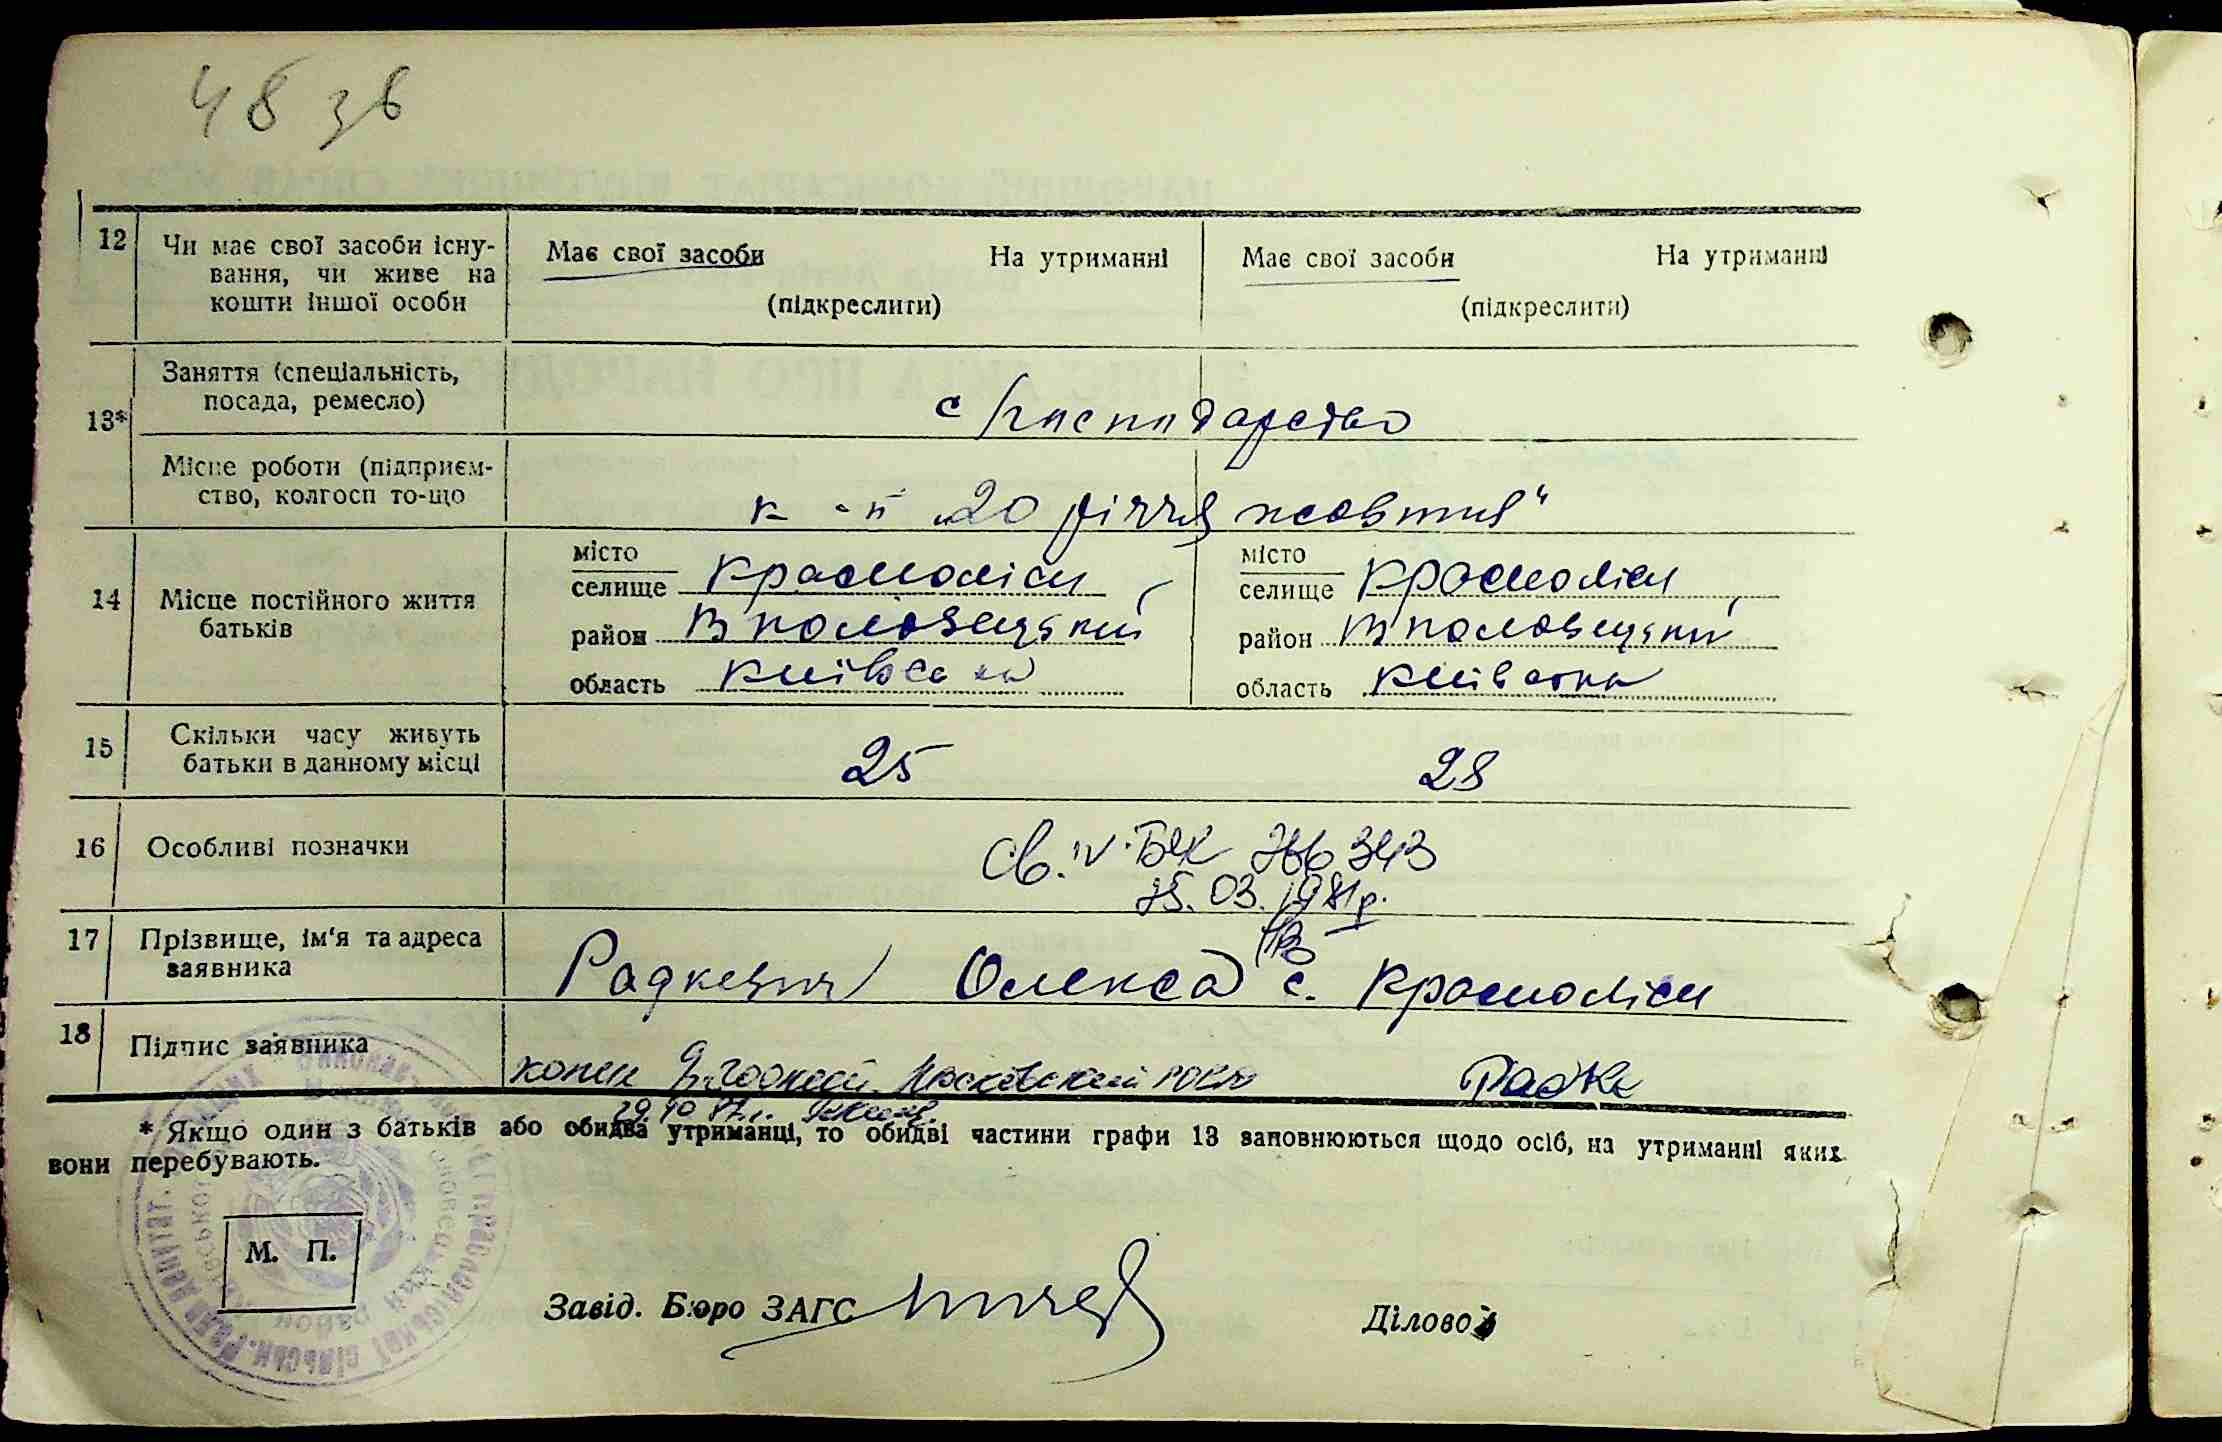 48 зв
12 Чи має свої засоби існу- Має свої засоби На утриманні Має свої засоби На утриманні
вання, чи живе на
кошти іншої особи (підкреслити) (підкреслити)
13* Заняття (спеціальність,
посада, ремесло) с/господарство
Місце роботи (підприєм-
ство, колгосп то-що к-п „20 річчя жовтня"
14 Місце постійного життя
батьків
місто місто
селище Красноліси, селище Красноліси,
район В половецький район В половецький
область Київська область Київська
15 Скільки часу живуть
батьки в данному місці 25 28
16 Особливі позначки Св. IV-БК 366343
25.03.1981р.
17 Прізвище, ім'я та адреса
заявника Радкевич Олекса с. Красноліси
18 Підпис заявника копия Радке
29.10 87г.
* Якщо один з батьків або обидва утриманці, то обидві частини графи 13 заповнюються щодо осіб, на утриманні яких
вони перебувають.
М. П.
Завід. Бюро ЗАГС Діловод